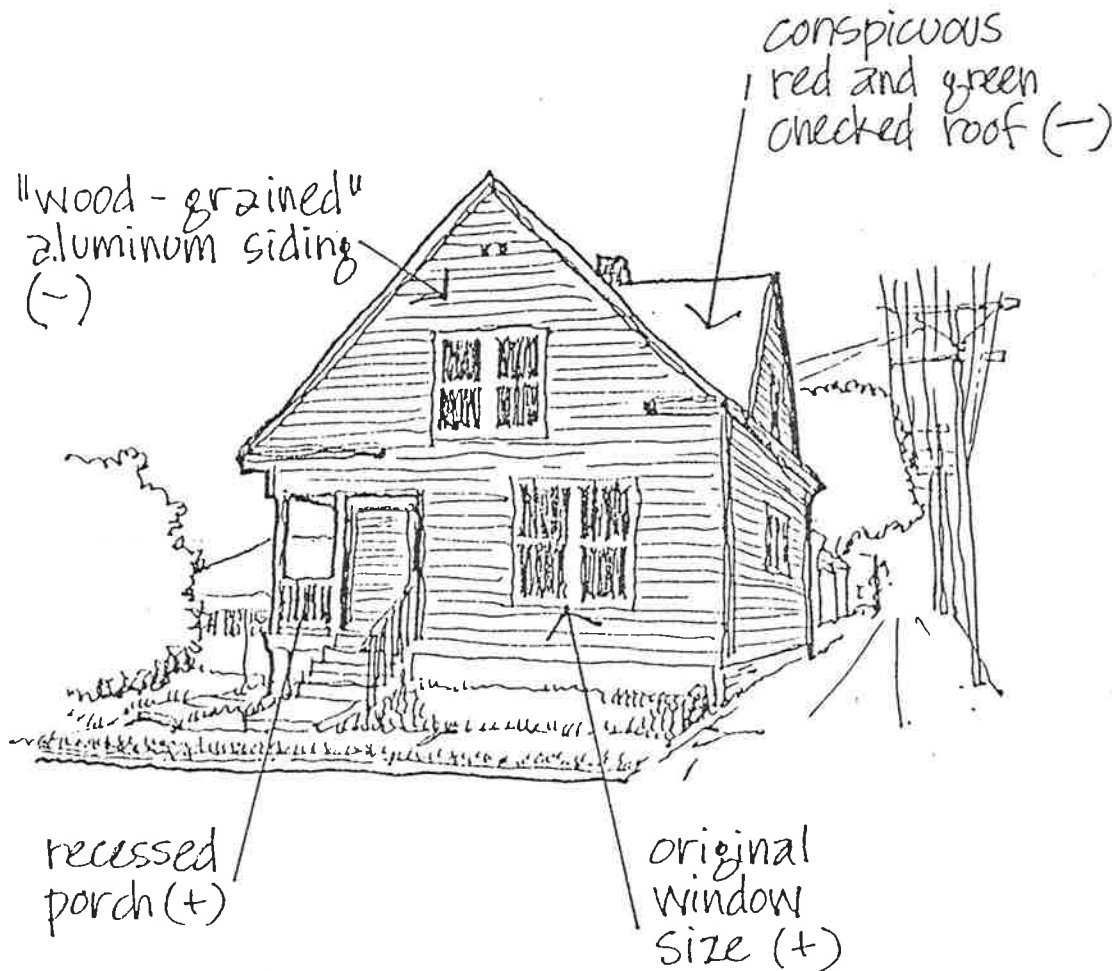 conspicuous
red and green
checked roof (-)
"wood-grained"
aluminum siding
(-)
recessed
porch (+)
original
window
size (+)